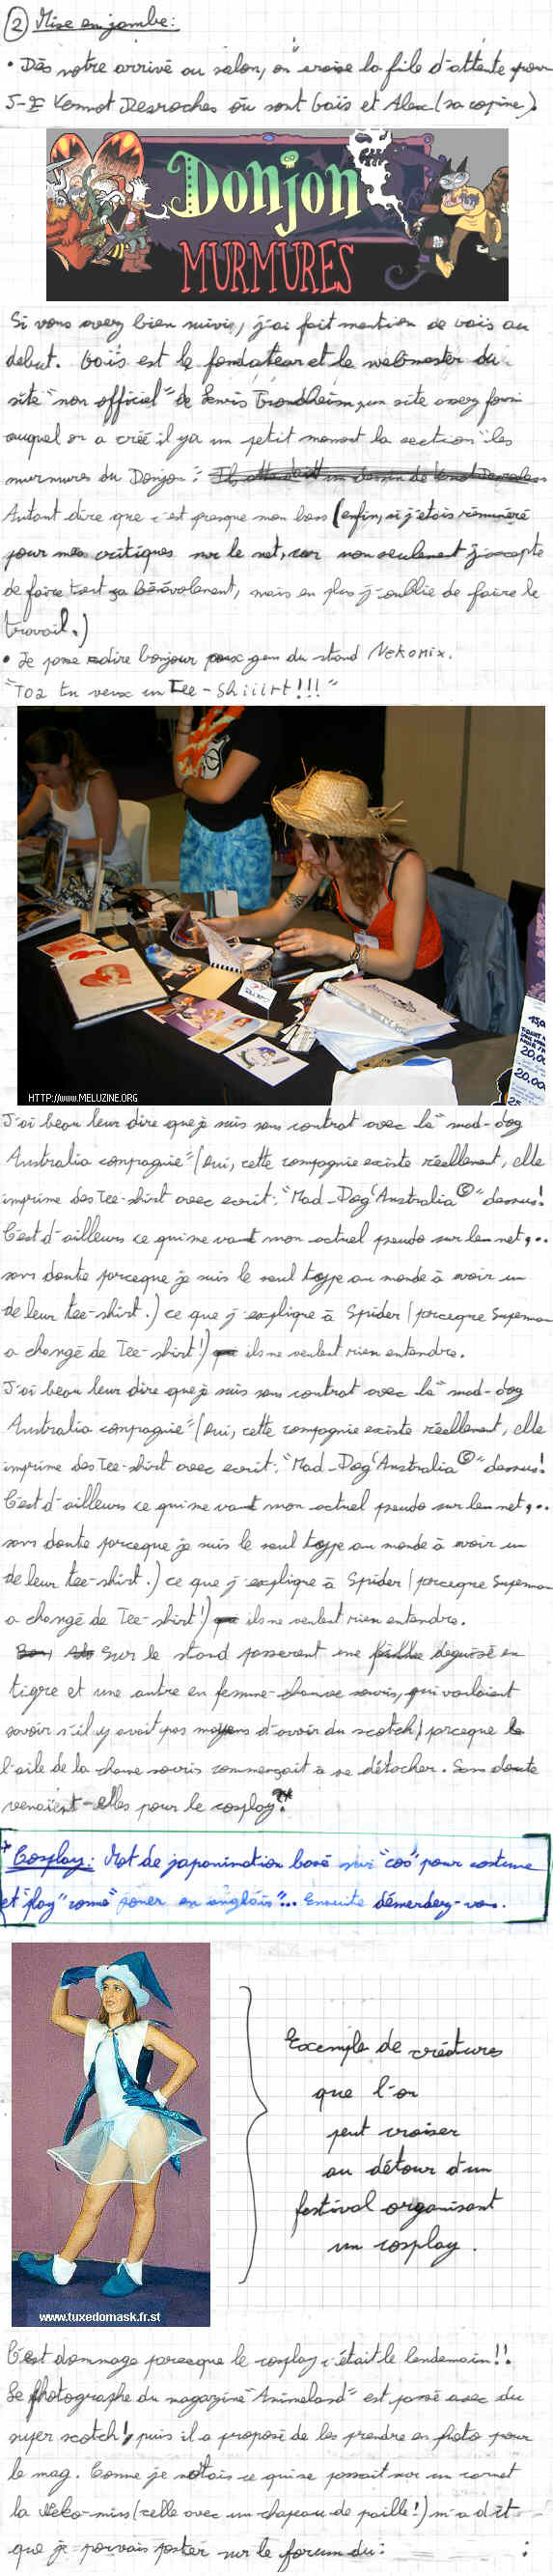 ② Mise en jambe:
• Dès notre arrivé au salon, on croise la file d'attente pour
J-E Vermot Desroches où sont Gaïs et Alex (sa copine).
Donjon
MURMURES
Si vous avez bien suivis, j'ai fait mention de Gaïs au
debut. Gaïs est le fondateur et le webmaster du
site "non officiel" de Lewis Trondheim, un site assez fourni
auquel on a créé il y a un petit moment la section "les
murmures du Donjon".
Autant dire que c'est presque mon boss (enfin, si j'étais rémunéré
pour mes critiques sur le net, car non seulement j'accepte
de faire tout ça bénévolement, mais en plus j'oublie de faire le
travail.)
• Je passe dire bonjour aux gens du stand Nekomix.
"Toa tu veux un Tee-Shiiirt!!!"
15,0
20,00
20,00
25
HTTP://www.MELUZINE.ORG
J'ai beau leur dire que je suis sous contrat avec la "mad-dog
Australia compagnie" (oui, cette compagnie existe réellement, elle
imprime des tee-shirt avec ecrit: "Mad-Dog Australia©" dessus!
C'est d'ailleurs ce qui me vaut mon actuel pseudo sur le net,..
sans doute parceque je suis le seul type au monde à avoir un
de leur tee-shirt.) ce que j'explique à Spider (parceque Superman
a changé de Tee-shirt!) ils ne veulent rien entendre.
J'ai beau leur dire que je suis sous contrat avec la "mad-dog
Australia compagnie" (oui, cette compagnie existe réellement, elle
imprime des tee-shirt avec ecrit: "Mad-Dog Australia©" dessus!
C'est d'ailleurs ce qui me vaut mon actuel pseudo sur le net,..
sans doute parceque je suis le seul type au monde à avoir un
de leur tee-shirt.) ce que j'explique à Spider (parceque Superman
a changé de Tee-shirt!) ils ne veulent rien entendre.
Sur le stand passerent une fille deguisé en
tigre et une autre en femme-chauve souris, qui voulaient
savoir s'il y avait pas moyens d'avoir du scotch, parceque
l'aile de la chauve souris commençait à se détacher. Sans doute
venaient-elles pour le cosplay?*
* Cosplay: Mot de japanimation basé sur "cos" pour costume
et "play" comme "jouer en anglais"... Ensuite démerdez-vous.
Exemple de créatures
que l'on
peut croiser
au détour d'un
festival organisant
un cosplay.
www.tuxedomask.fr.st
C'est dommage parceque le cosplay c'était le lendemain!!
Le photographe du magazine "Animeland" est passé avec du
super scotch! puis il a proposé de les prendre en photo pour
le mag. Comme je notais ce qui se passait sur un carnet
la Neko-miss (celle avec un chapeau de paille!) m'a dit
que je pouvais poster sur le forum du: :